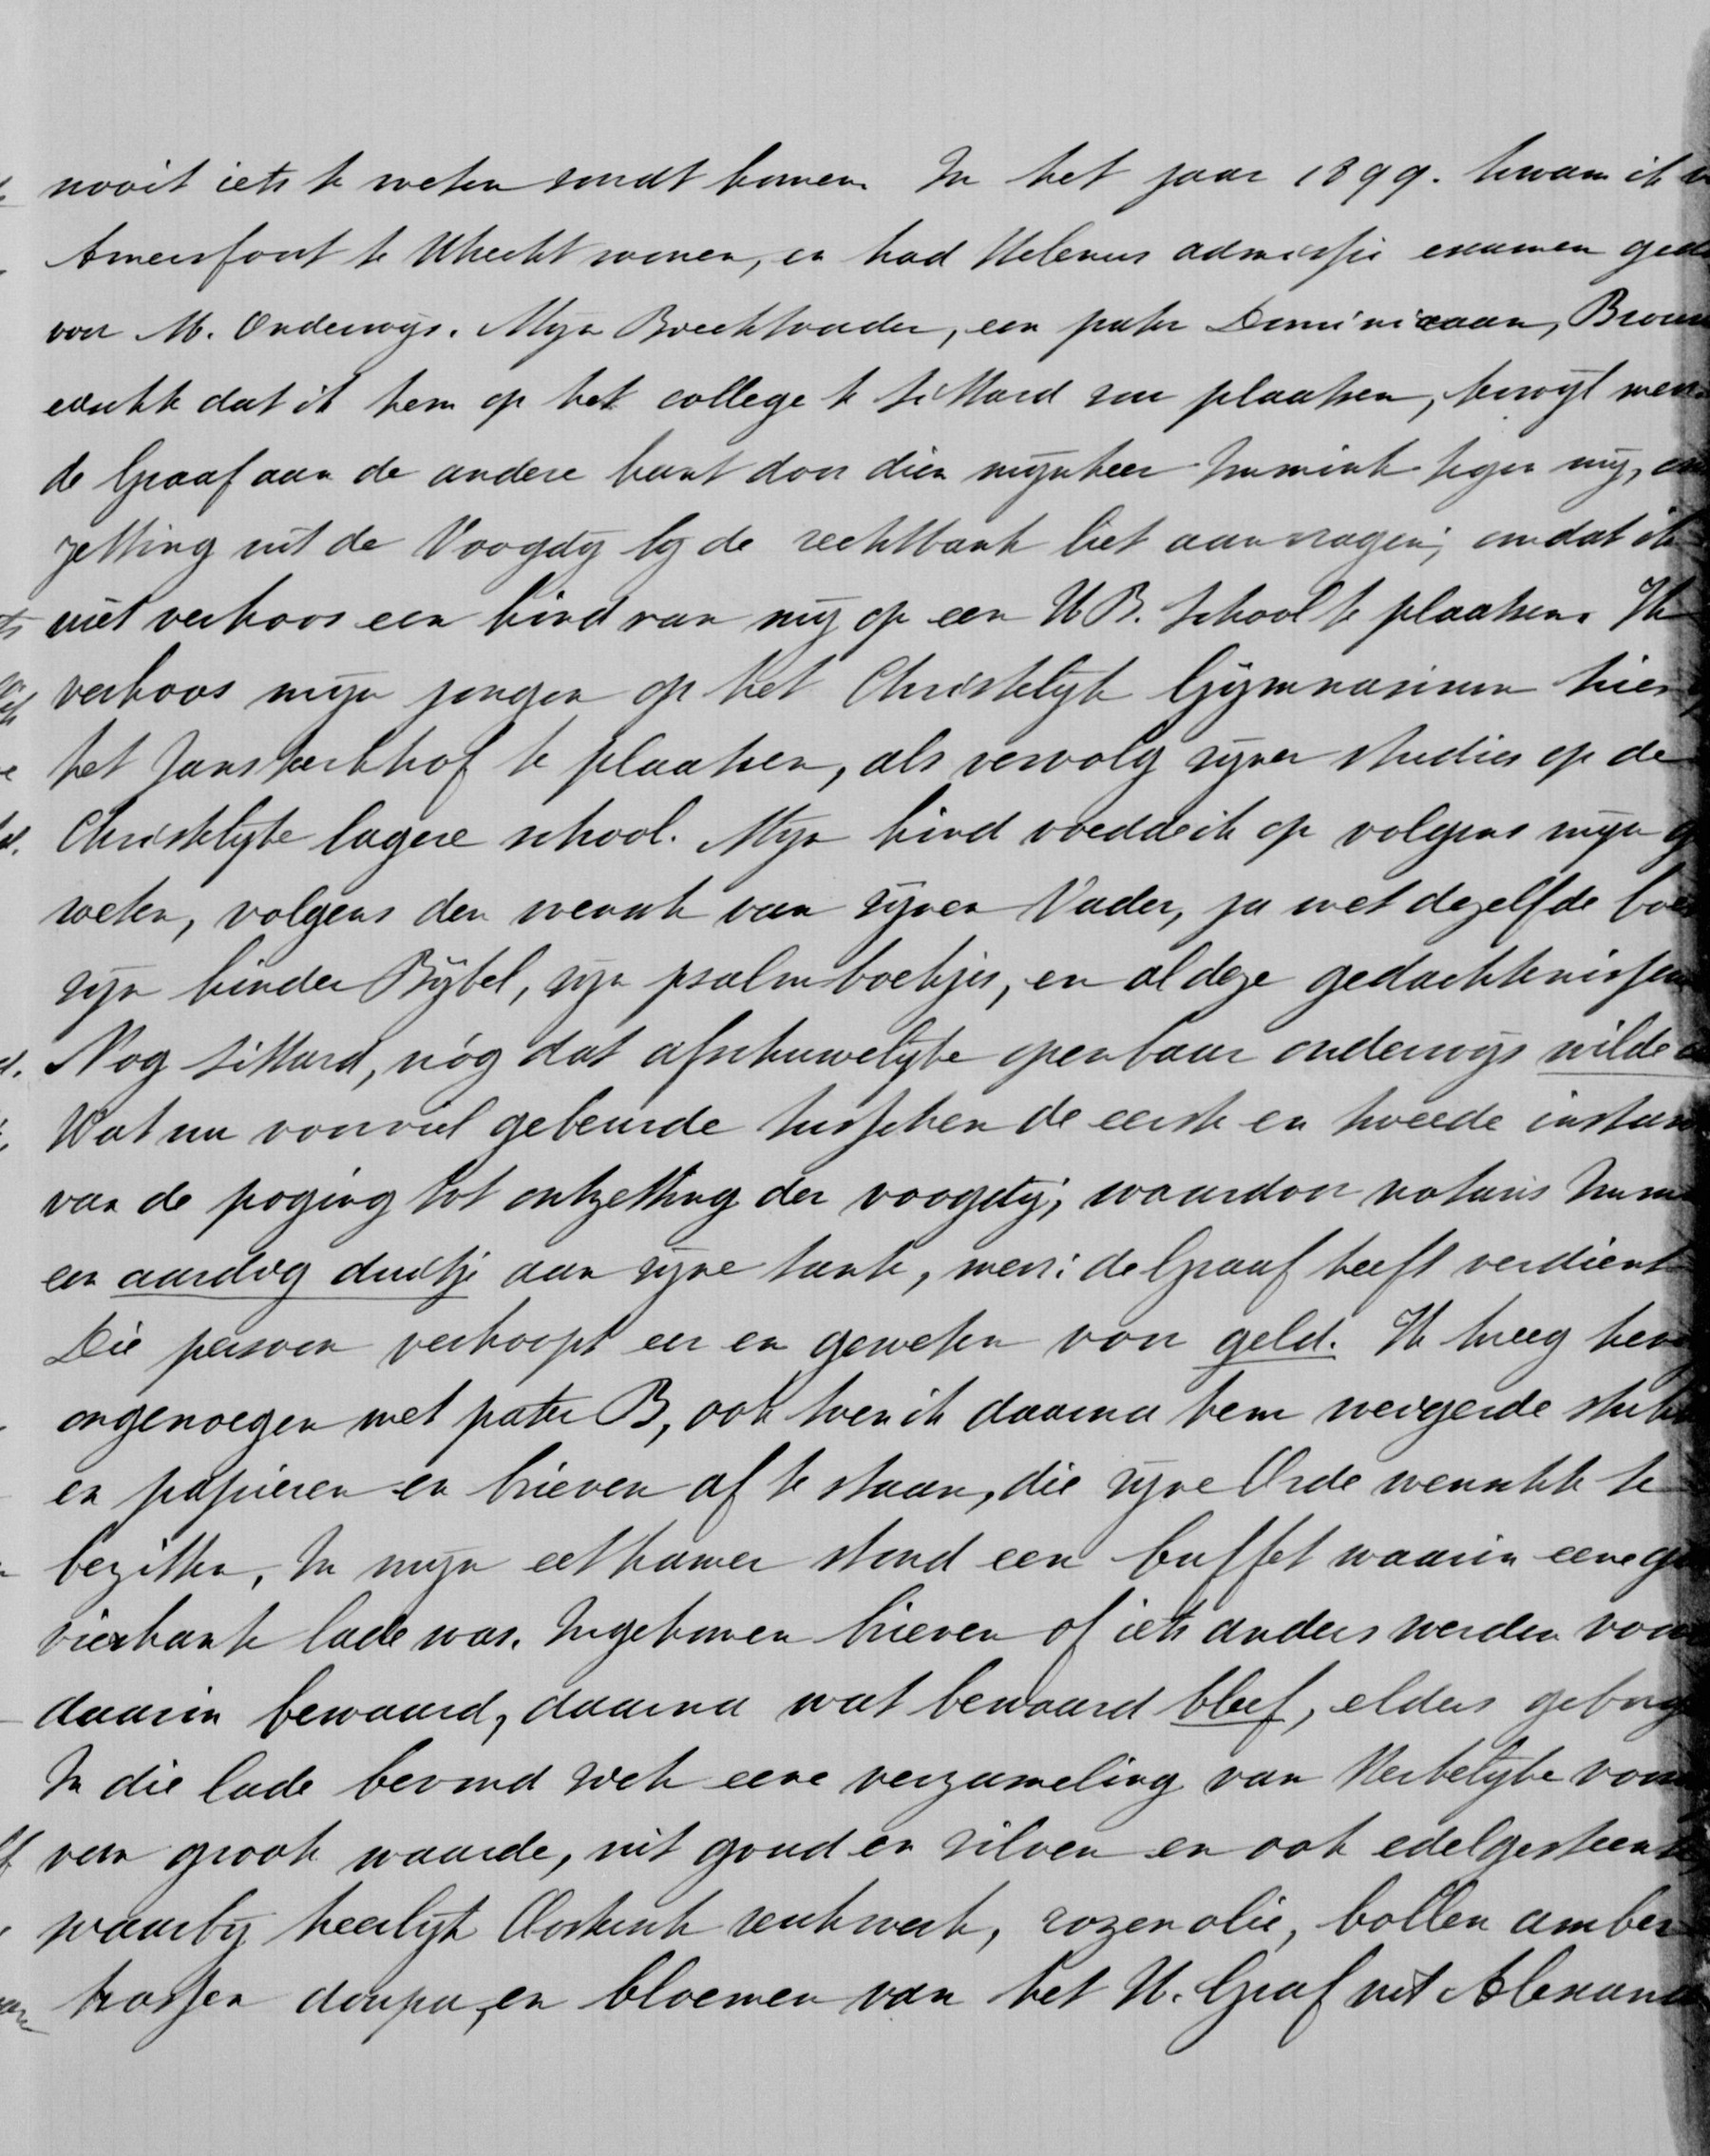 nooit iets te weten zoudt komen. In het jaar 1899. kwam ik
Amersfoort te Utrecht wonen, en had Helenus admissie examen ged
voor M. Onderwijs. Mijn Biechtvader, een pater Dominicaan,
eischte dat ik hem op het college te Sittard zou plaatsen, terwijl mevr.
de Graaf aan de andere kant door dien mijnheer Immink tegen mij,
zetting uit de Voogdij bij de rechtbank liet aanvragen, omdat ik
niet verkoos een kind van mij op een H B. School te plaatsen. Ik
verkoos mijn jongen op het Christelijk Gymnasium hier
het Janskerkhof te plaatsen, als vervolg zijner studies op de
Christelijke lagere school. Mijn kind voedde ik op volgens mijn g
weten, volgens den wensch van zijnen Vader, ja met dezelfde boe
zijn kinder Bijbel, zijn psalmboekjes, en al deze gedachtenissen
Nog Sittard, nóg dat afschuwelijke openbaar onderwijs wilde
Wat nu voorviel gebeurde tusschen de eerste en tweede instan
van de poging tot ontzetting der voogdij; waardoor notaris Imm
een aardig duitje aan zijne tante, mevr: de Graaf heeft verdient
Die persoon verkoopt eer en geweten voor geld. Ik kreeg
ongenoegen met pater B, ook toen ik daarna hem weigerde stuk
en papieren en brieven af te staan, die zijne Orde wenschte te
bezitten, In mijn eetkamer stond een buffet waarin eene
vierkante lade was. Ingekomen brieven of iets anders werden voor
daarin bewaard, daarna wat bewaard bleef, elders geborg
In die lade bevond zich eene verzameling van Kerkelijke voor
van groote waarde, uit goud en zilver en ook edelgesteent
waarbij heerlijk Oostersch reukwerk, rozenolie, bollen amber
trossen en bloemen van het H. Graf uit Alexand